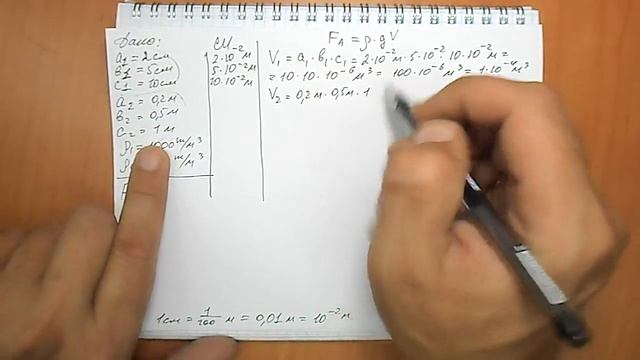 Дано:
a₁ = 2см
b₁ = 5см
c₁ = 10см
a₂ = 0,2м
b₂ = 0,5м
c₂ = 1м
ρ₁ = 1000 кг/м³
м³
СИ
2·10⁻²м
5·10⁻²м
10·10⁻²м
F_A = ρ·gV
V₁ = a₁·b₁·c₁ = 2·10⁻²м·5·10⁻²м·10·10⁻²м =
= 10·10·10⁻⁶м³ = 100·10⁻⁶м³ = 1·10⁻⁴м³
V₂ = 0,2м·0,5м·1
1см = 1/100 м = 0,01м = 10⁻²м